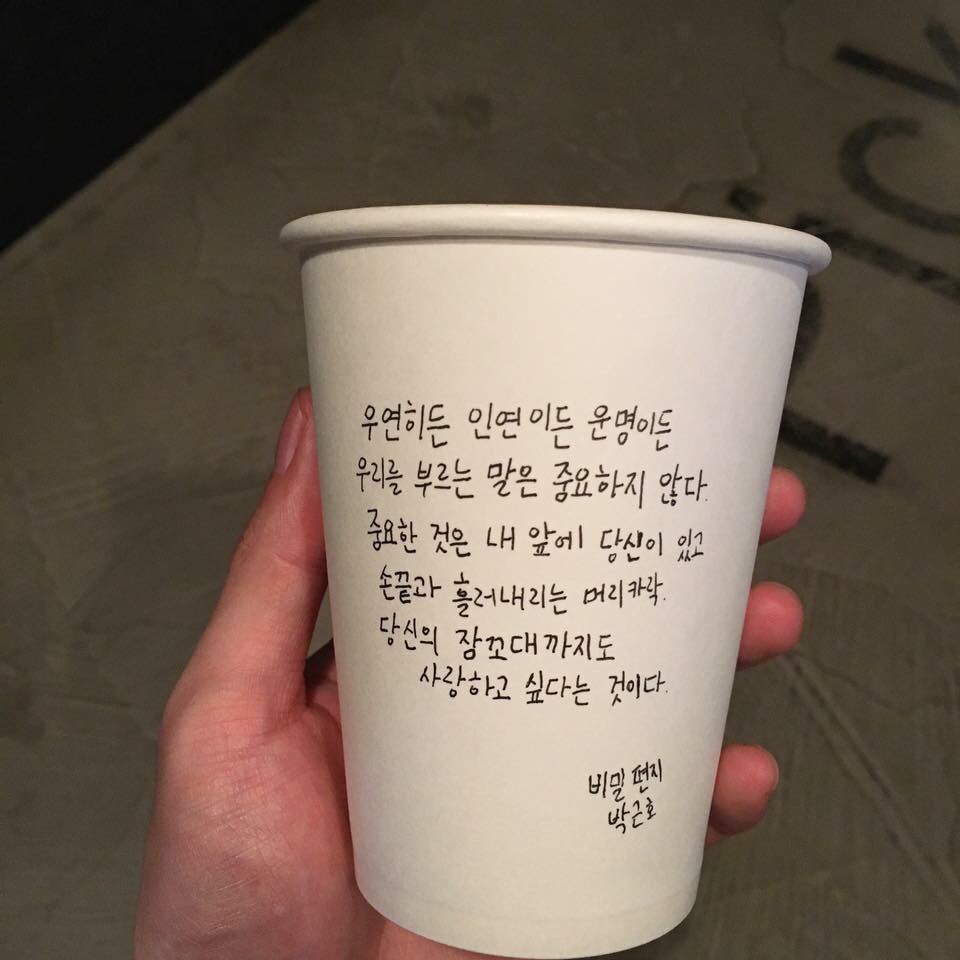 우연히든 인연이든 운명이든
우리를 부르는 말은 중요하지 않다.
중요한 것은 내 앞에 당신이 있고
손끝과 흘러내리는 머리카락.
당신의 잠꼬대까지도
사랑하고 싶다는 것이다.
비밀 편지
박근호